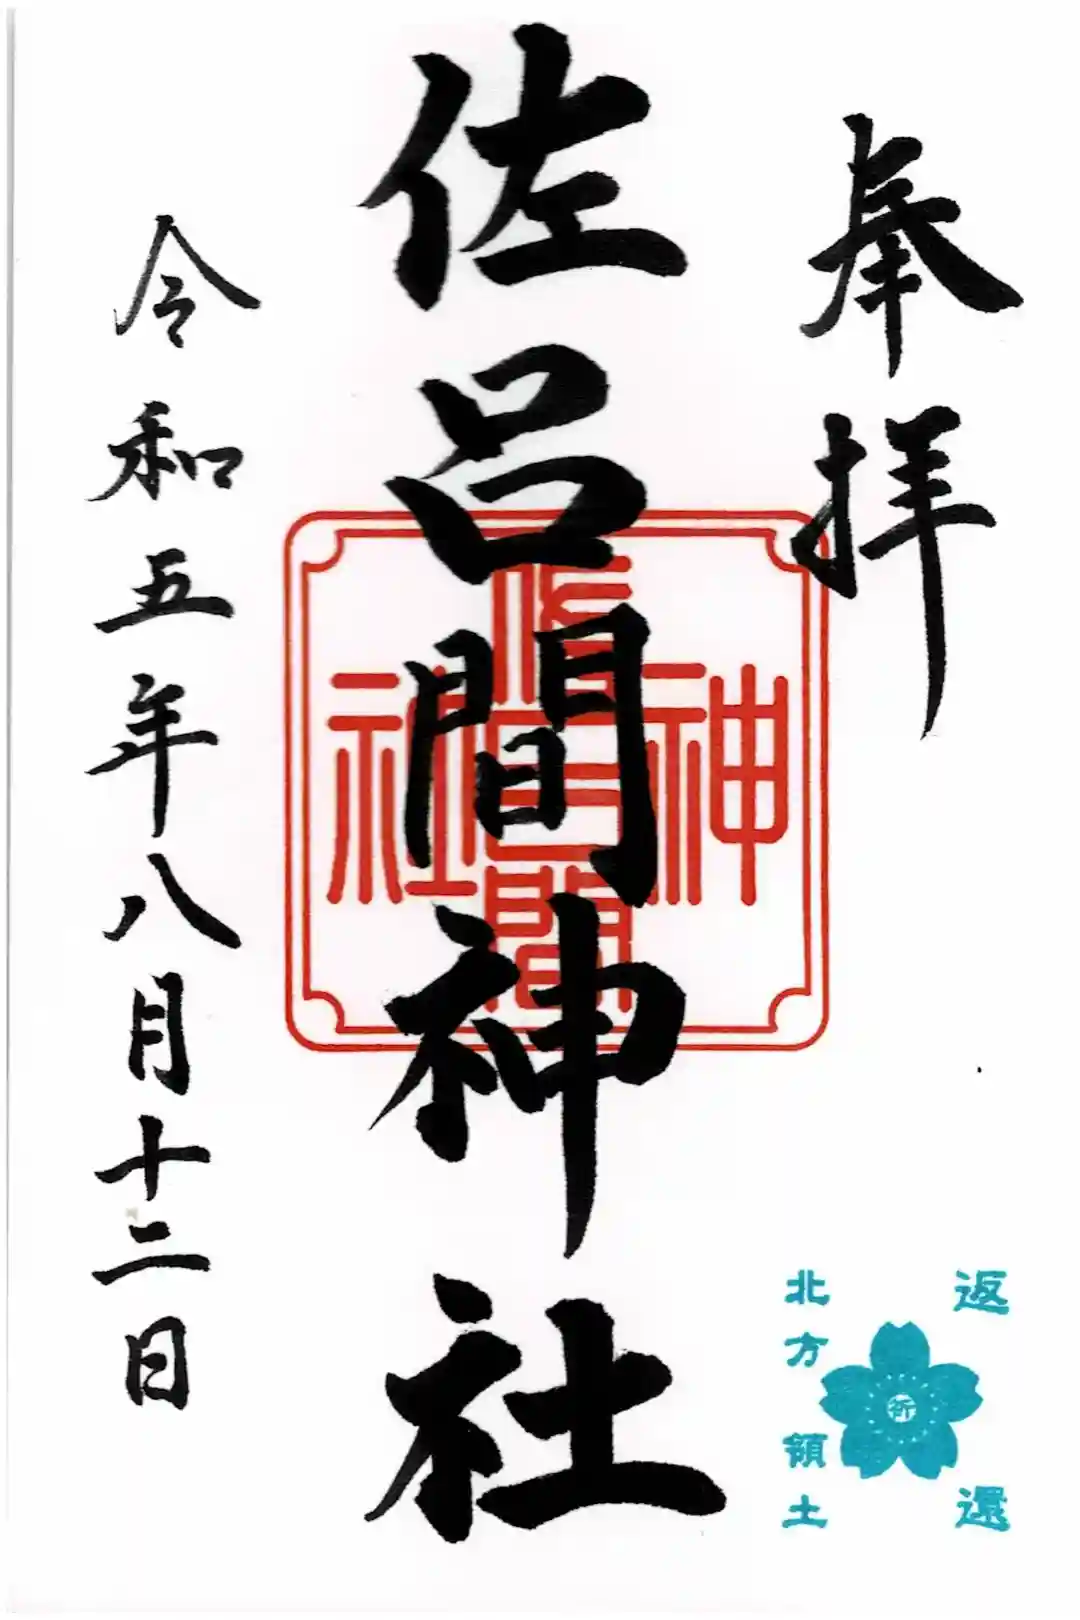 奉拝
佐呂間神社
佐呂間
神
社
令和五年八月十二日
返還
祈
北方領土